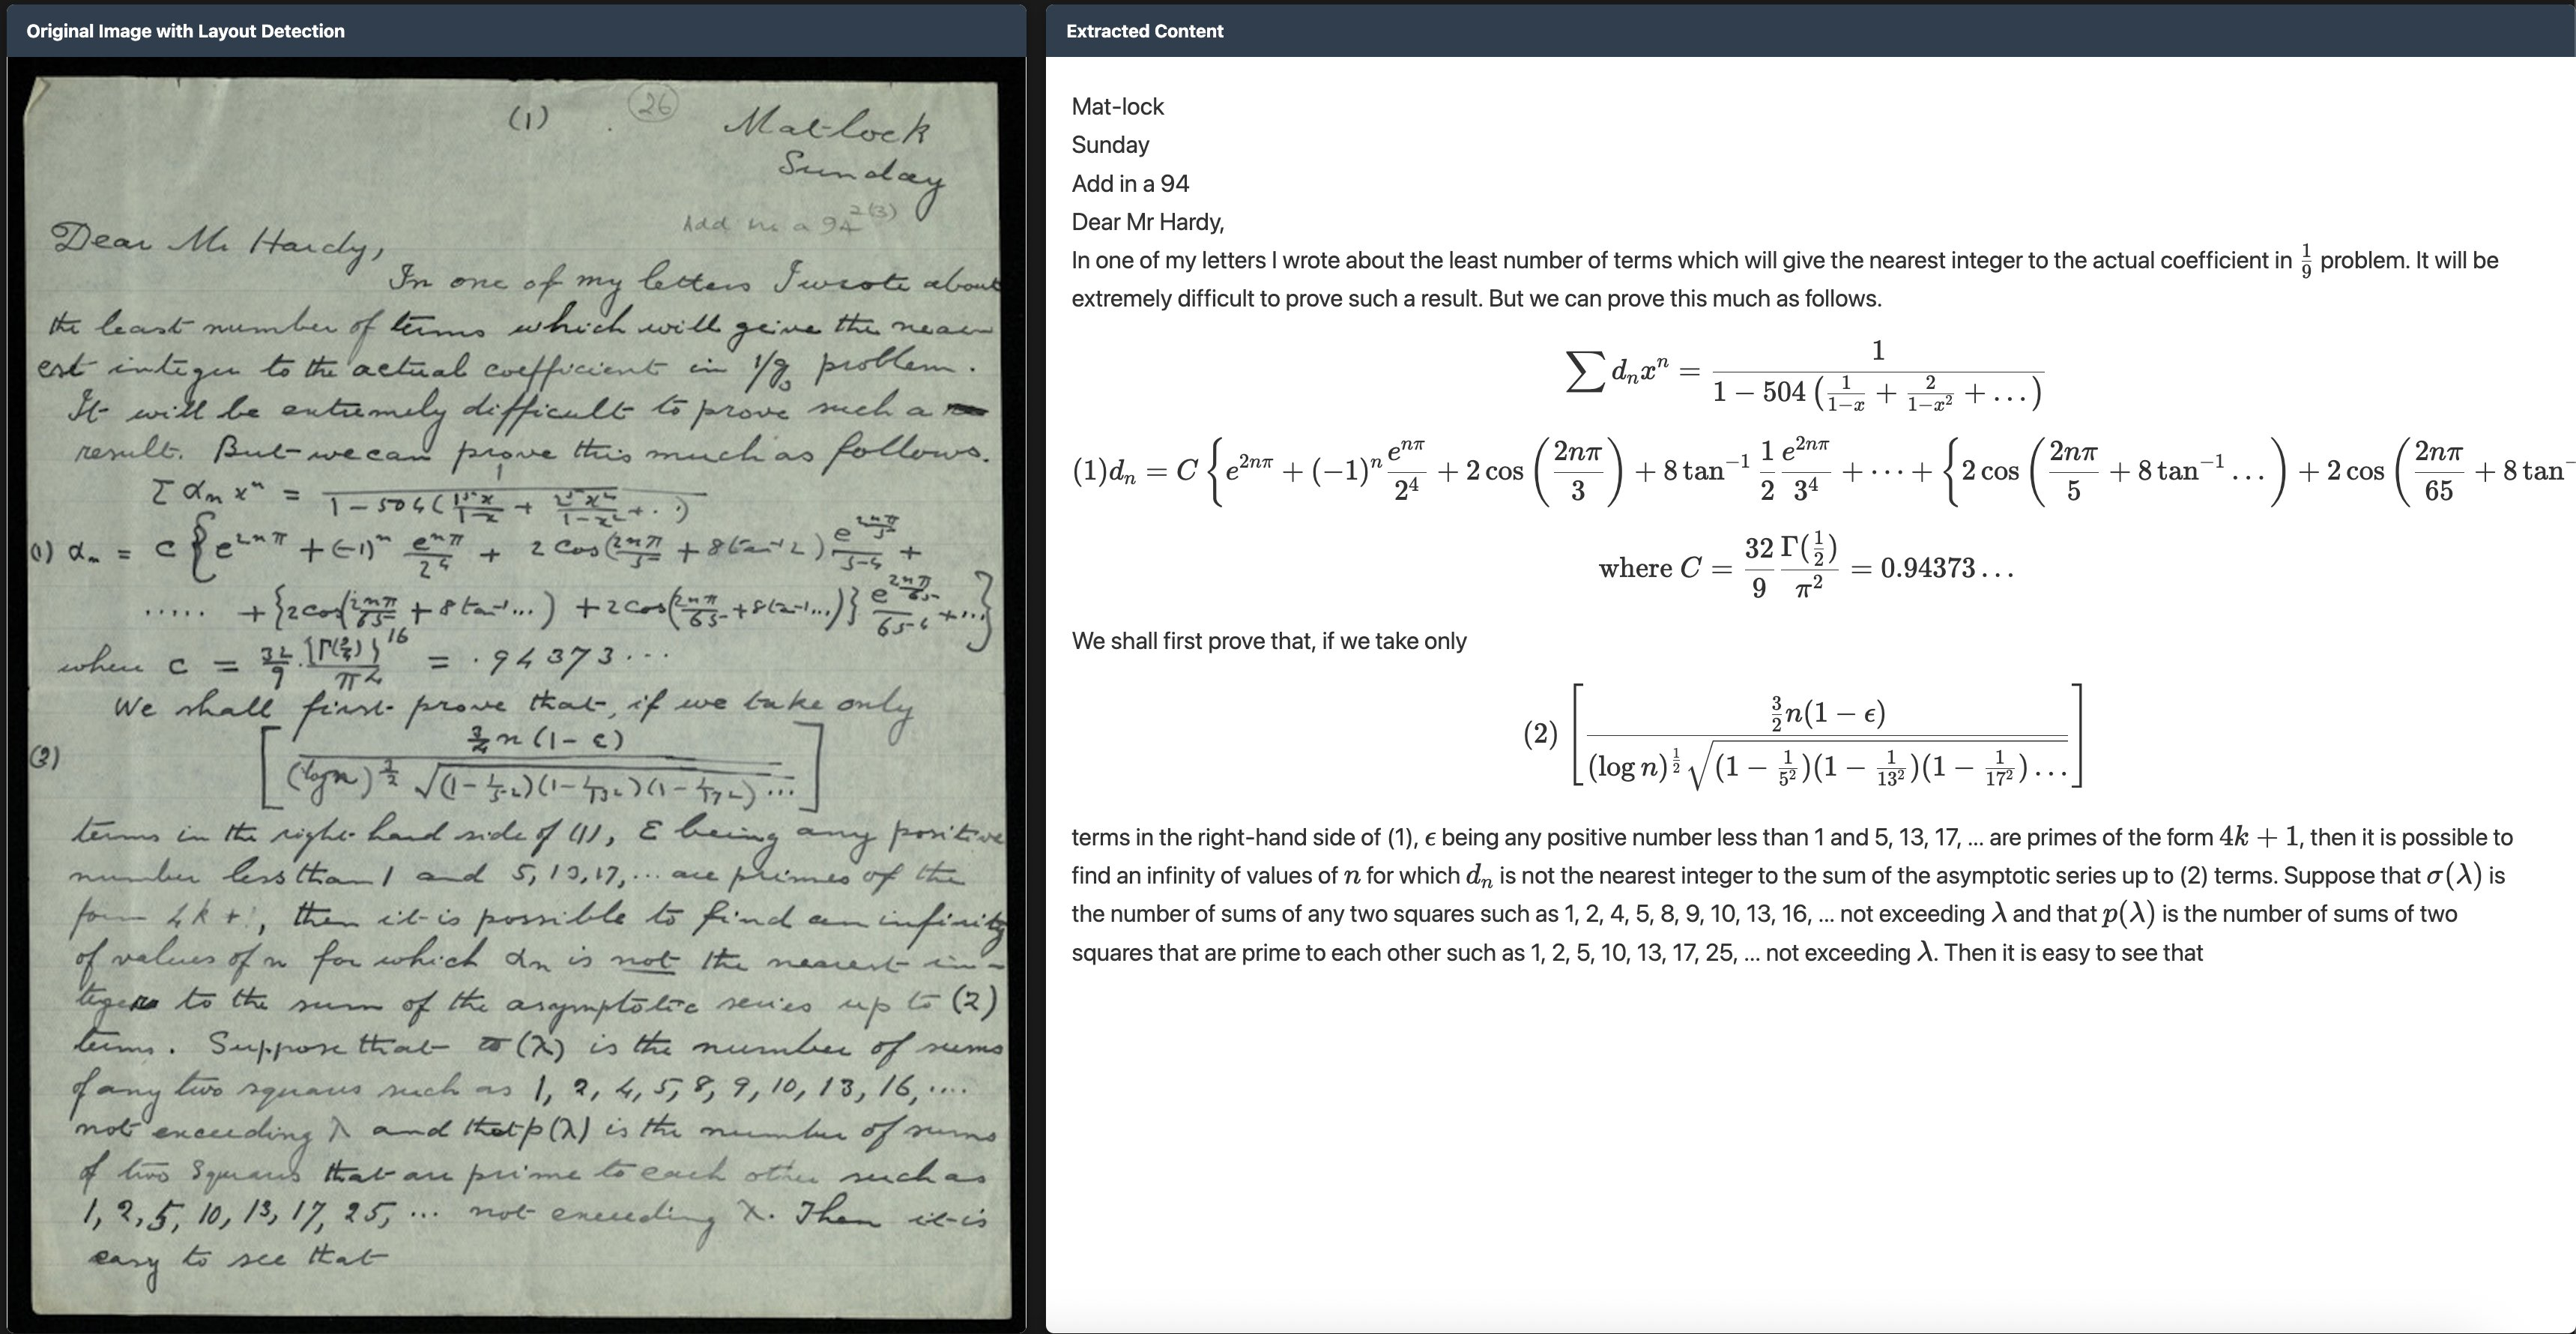 Original Image with Layout Detection
(1)
26
Mat-lock
Sunday
Add in a 94 2(3)
Dear Mr Hardy,
In one of my letters I wrote about
the least number of terms which will geive the near
est integer to the actual coefficient in 1/g₃ problem.
It will be extremely difficult to prove such a
result. But we can prove this much as follows.
Σ αₙ xⁿ = 1 / (1 - 504(1⁵x/(1-x) + 2⁵x²/(1-x²) + ..))
(1) αₙ = C {e^(2nπ) + (-1)ⁿ e^(nπ)/2⁴ + 2 Cos(2nπ/5 + 8 tan⁻¹ 2) e^(2nπ/5)/5⁴ +
..... + {2 cos(2nπ/65 + 8 tan⁻¹...) + 2 Cos(2nπ/65 + 8 tan⁻¹...)} e^(2nπ/65)/65⁴ + ...}
when C = 32/9 · {Γ(3/4)}^16 / π⁴ = .94373...
We shall first prove that, if we take only
(2) [ (3/2)n (1-ε) / ((log n)^(1/2) √((1-1/5²)(1-1/13²)(1-1/17²)...)) ]
terms in the right hand side of (1), ε being any positive
number less than 1 and 5, 13, 17, ... are primes of the
form 4k+1, then it is possible to find an infinity
of values of n for which αₙ is not the nearest in-
teger to the sum of the asymptotic series up to (2)
terms. Suppose that (λ) is the number of sums
of any two squares such as 1, 2, 4, 5, 8, 9, 10, 13, 16, ....
not exceeding λ and that p(λ) is the number of sums
of two squares that are prime to each other such as
1, 2, 5, 10, 13, 17, 25, ... not exceeding λ. Then it is
easy to see that
Extracted Content
Mat-lock
Sunday
Add in a 94
Dear Mr Hardy,
In one of my letters I wrote about the least number of terms which will give the nearest integer to the actual coefficient in 1/9 problem. It will be
extremely difficult to prove such a result. But we can prove this much as follows.
∑ dₙxⁿ = 1 / (1 − 504 (1/(1−x) + 2/(1−x²) + …))
(1)dₙ = C {e^(2nπ) + (−1)ⁿ e^(nπ)/2⁴ + 2 cos (2nπ/3) + 8 tan⁻¹ 1/2 e^(2nπ)/3⁴ + ⋯ + {2 cos (2nπ/5 + 8 tan⁻¹ …) + 2 cos (2nπ/65 + 8 tan⁻
where C = 32/9 Γ(1/2)/π² = 0.94373 …
We shall first prove that, if we take only
(2) [ (3/2)n(1 − ϵ) / ((log n)^(1/2) √((1 − 1/5²)(1 − 1/13²)(1 − 1/17²) …)) ]
terms in the right-hand side of (1), ϵ being any positive number less than 1 and 5, 13, 17, ... are primes of the form 4k + 1, then it is possible to
find an infinity of values of n for which dₙ is not the nearest integer to the sum of the asymptotic series up to (2) terms. Suppose that σ(λ) is
the number of sums of any two squares such as 1, 2, 4, 5, 8, 9, 10, 13, 16, ... not exceeding λ and that p(λ) is the number of sums of two
squares that are prime to each other such as 1, 2, 5, 10, 13, 17, 25, ... not exceeding λ. Then it is easy to see that